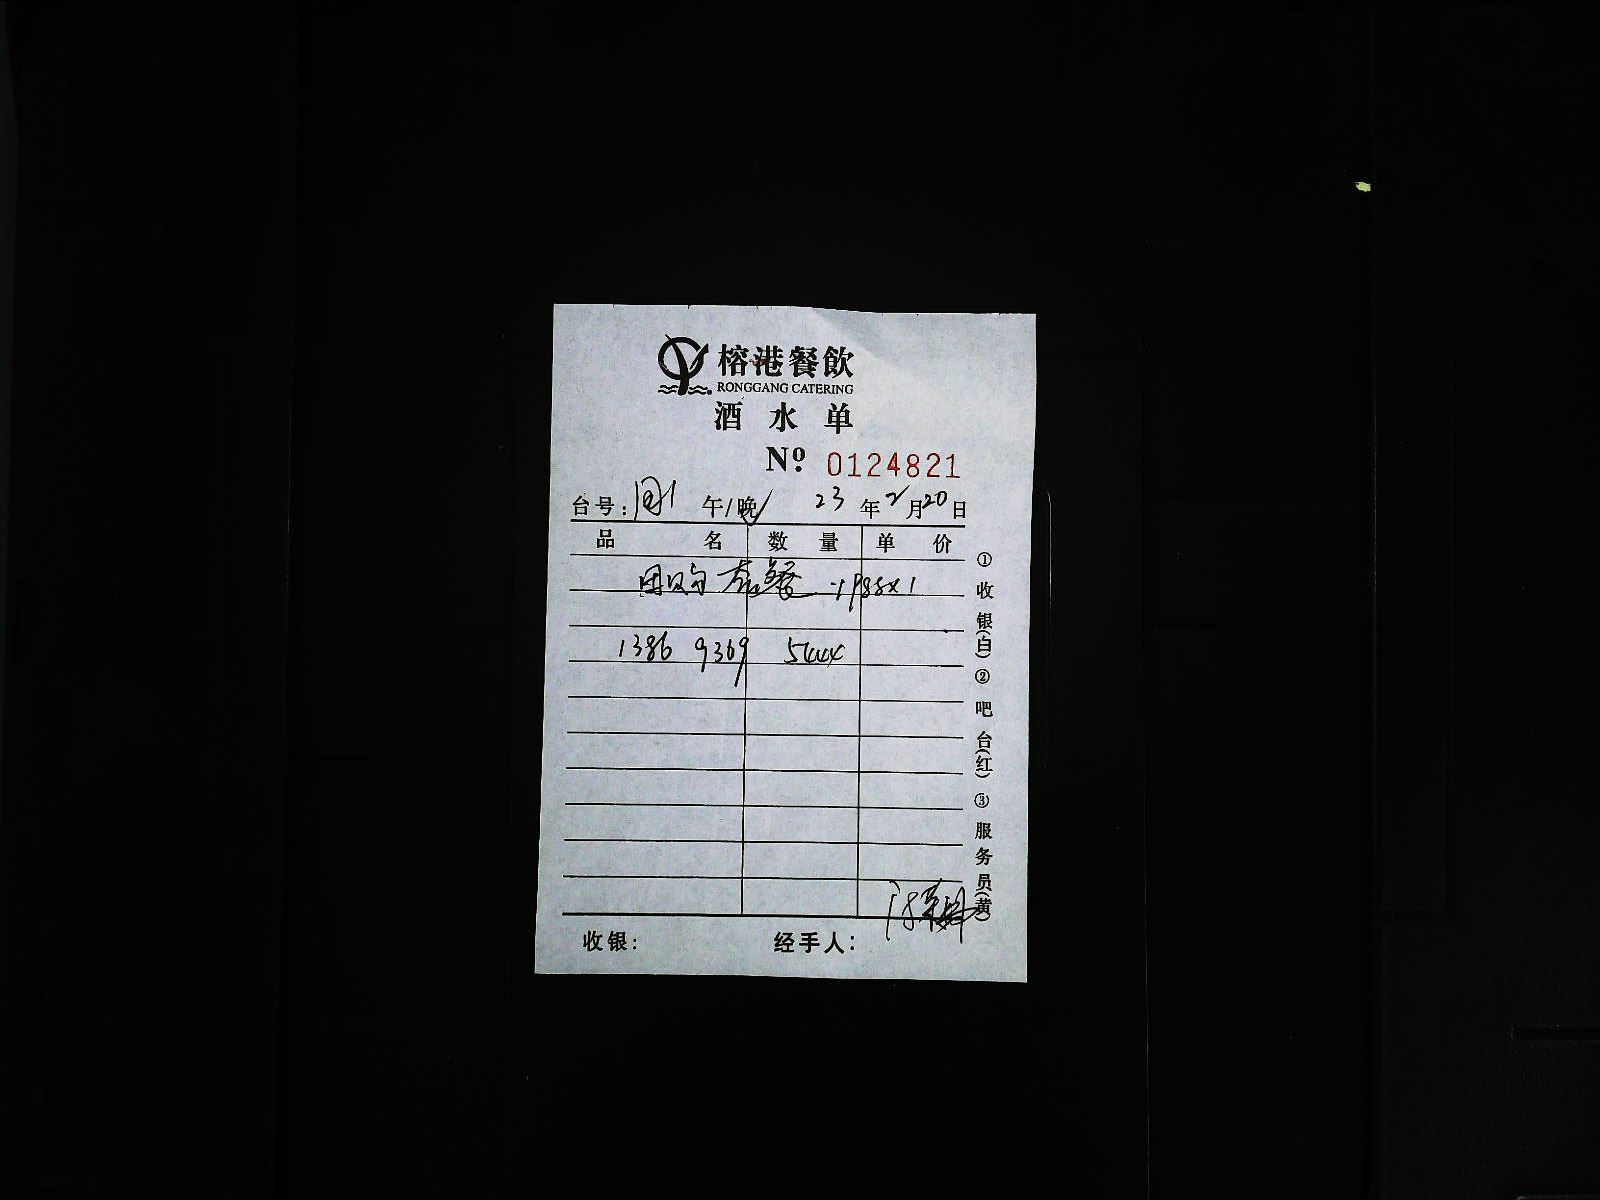 榕港餐飲
RONGGANG CATERING
酒水单
Nº 0124821
台号: 午/晚 23年2月20日
品名 数量 单价
团购套餐 1988x1
1386 9369 5444
收银: 经手人:
①收银(白) ②吧台(红) ③服务员(黄)